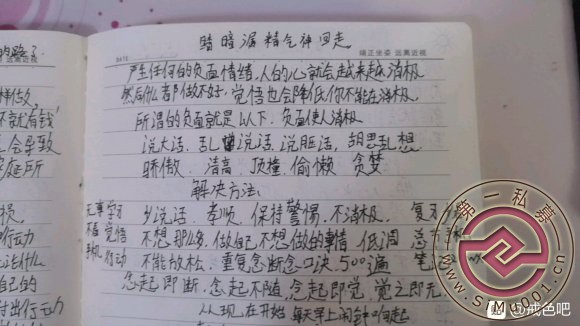 暗暗漏精气神回走
端正坐姿 远离近视
产生任何的负面情绪,人的心就会越来越消极
然后什么都做不好,觉悟也会降低你不能在消极
所谓的负面就是以下.负面使人消极
说大话,乱说话,说脏话,胡思乱想
骄傲,清高,顶撞,偷懒,贪婪
解决方法:
少说话,孝顺,保持警惕,不消极,
不想那么多,做自己不想做的事情,低调
不能放松,重复念断念口决.500遍
念起即断,念起不随,念起即觉,觉之即无
从现在开始 每天早上闹钟响起
无事 学习
觉悟
样做,
不就有钱
会导致
行动
什么
自己的
付出行动
远离近视
第一私募
www.simu001.cn
@戒色吧